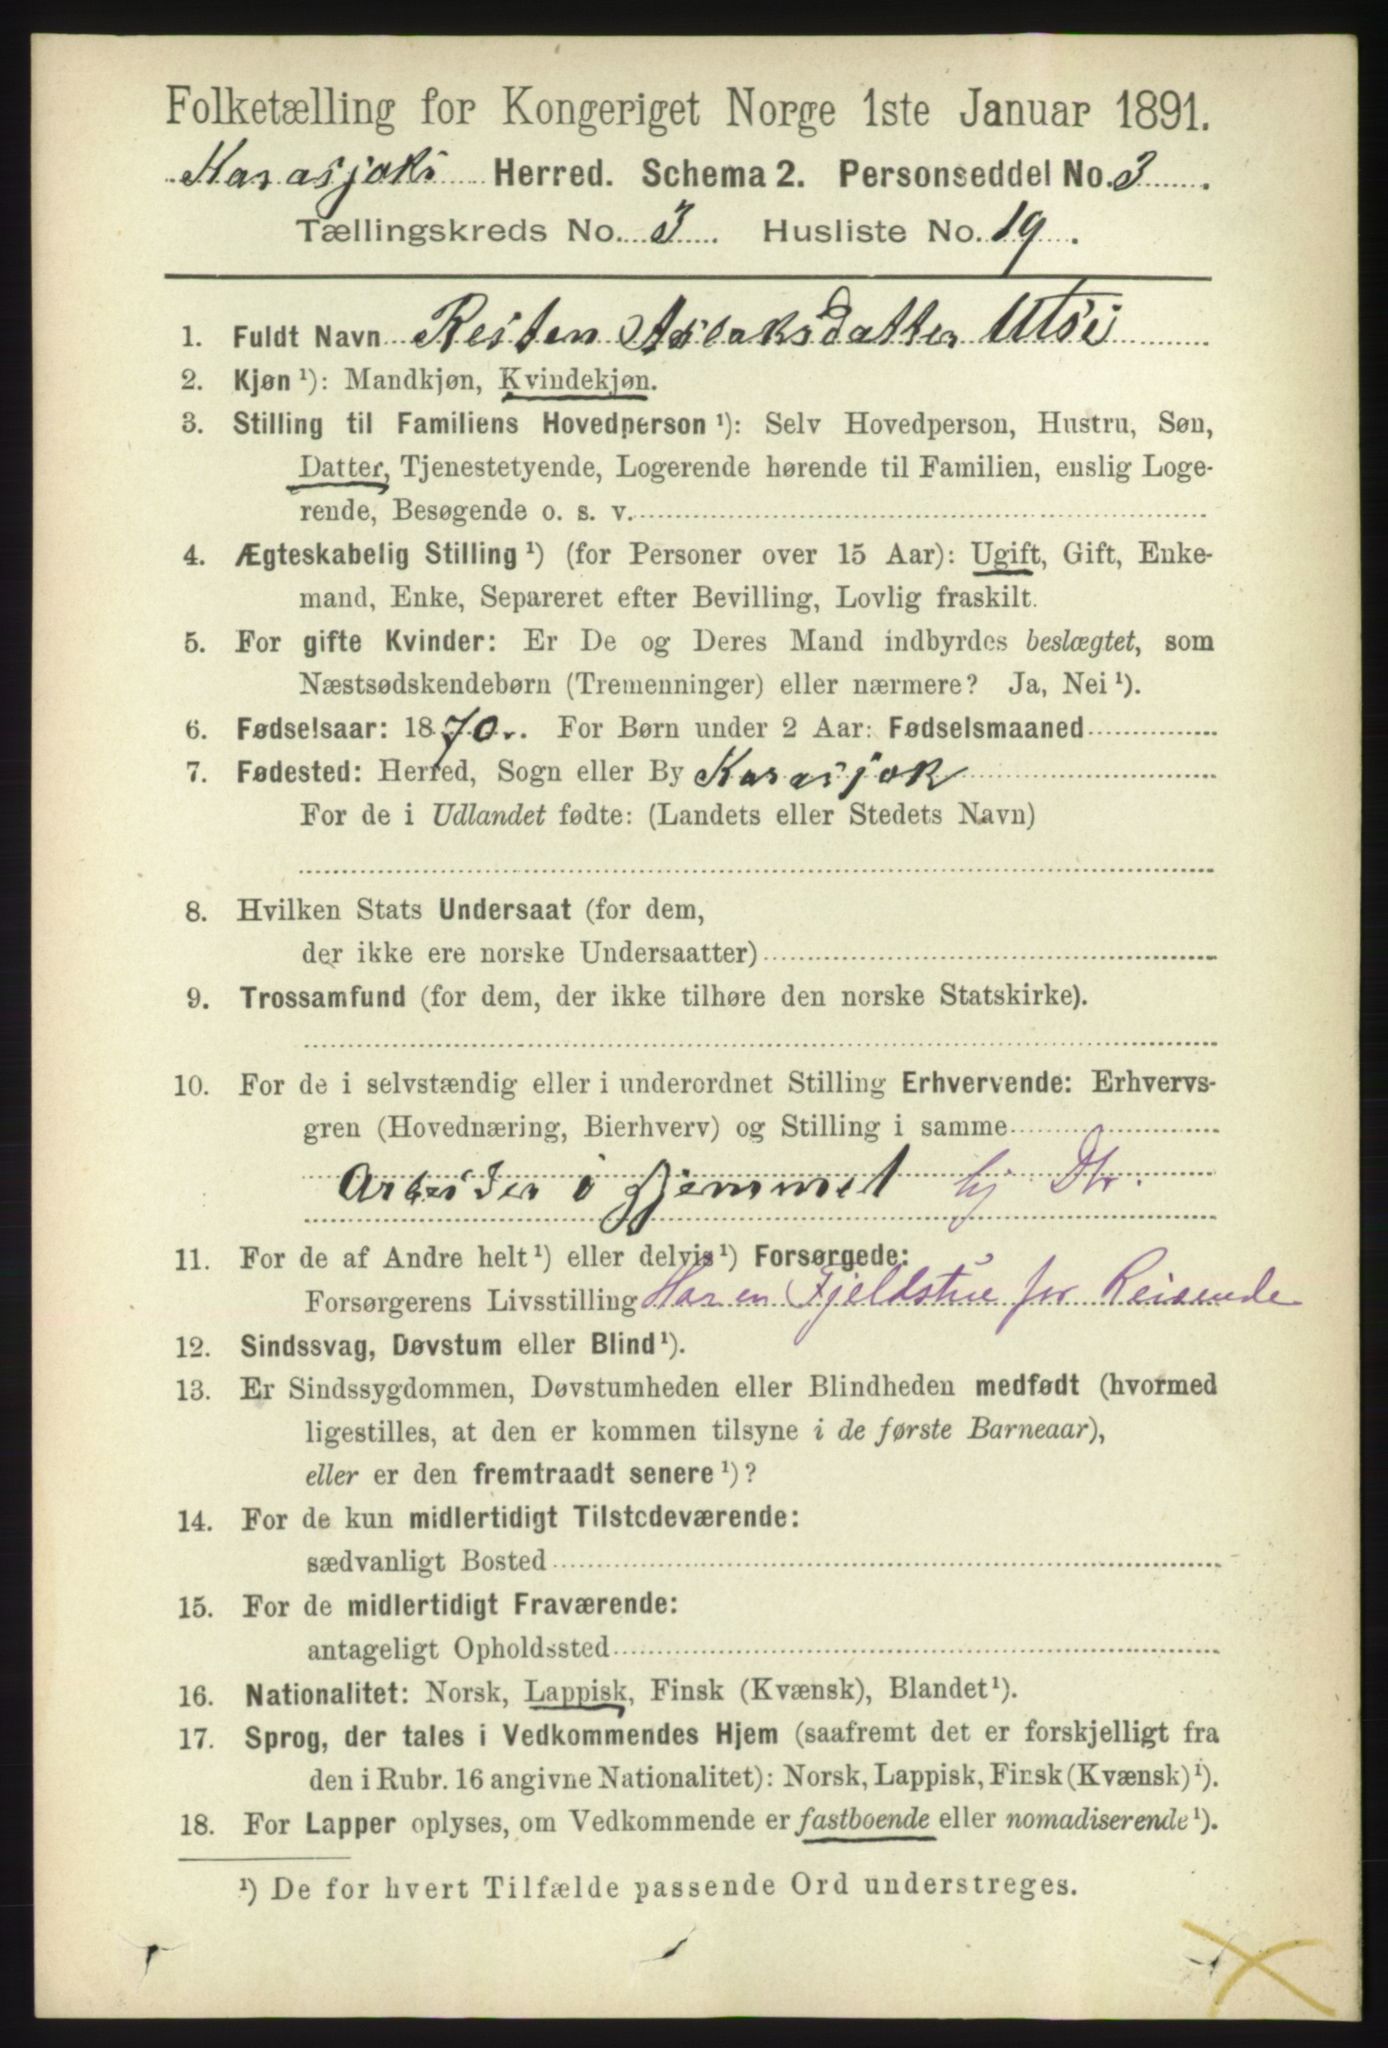 Folketælling for Kongeriget Norge 1ste Januar 1891.
Karasjoks Herred. Schema 2. Personseddel No. 3.
Tællingskreds No. 3. Husliste No. 19.
1. Fuldt Navn Resten Aslaksdatter Utsi
2. Kjøn ¹): Mandkjøn, Kvindekjøn.
3. Stilling til Familiens Hovedperson ¹): Selv Hovedperson, Hustru, Søn,
Datter, Tjenestetyende, Logerende hørende til Familien, enslig Loge-
rende, Besøgende o. s. v.
4. Ægteskabelig Stilling ¹) (for Personer over 15 Aar): Ugift, Gift, Enke-
mand, Enke, Separeret efter Bevilling, Lovlig fraskilt.
5. For gifte Kvinder: Er De og Deres Mand indbyrdes beslægtet, som
Næstsødskendebørn (Tremenninger) eller nærmere? Ja, Nei ¹).
6. Fødselsaar: 1870. For Børn under 2 Aar: Fødselsmaaned
7. Fødested: Herred, Sogn eller By Karasjok
For de i Udlandet fødte: (Landets eller Stedets Navn)
8. Hvilken Stats Undersaat (for dem,
der ikke ere norske Undersaatter)
9. Trossamfund (for dem, der ikke tilhøre den norske Statskirke).
10. For de i selvstændig eller i underordnet Stilling Erhvervende: Erhvervs-
gren (Hovednæring, Bierhverv) og Stilling i samme
Arbeider i Hjemmet hj Dtr.
11. For de af Andre helt ¹) eller delvis ¹) Forsørgede:
Forsørgerens Livsstilling Har en Fjeldstue for Reisende
12. Sindssvag, Døvstum eller Blind ¹).
13. Er Sindssygdommen, Døvstumheden eller Blindheden medfødt (hvormed
ligestilles, at den er kommen tilsyne i de første Barneaar),
eller er den fremtraadt senere ¹)?
14. For de kun midlertidigt Tilstedeværende:
sædvanligt Bosted
15. For de midlertidigt Fraværende:
antageligt Opholdssted
16. Nationalitet: Norsk, Lappisk, Finsk (Kvænsk), Blandet ¹).
17. Sprog, der tales i Vedkommendes Hjem (saafremt det er forskjelligt fra
den i Rubr. 16 angivne Nationalitet): Norsk, Lappisk, Finsk (Kvænsk) ¹).
18. For Lapper oplyses, om Vedkommende er fastboende eller nomadiserende ¹).
¹) De for hvert Tilfælde passende Ord understreges.